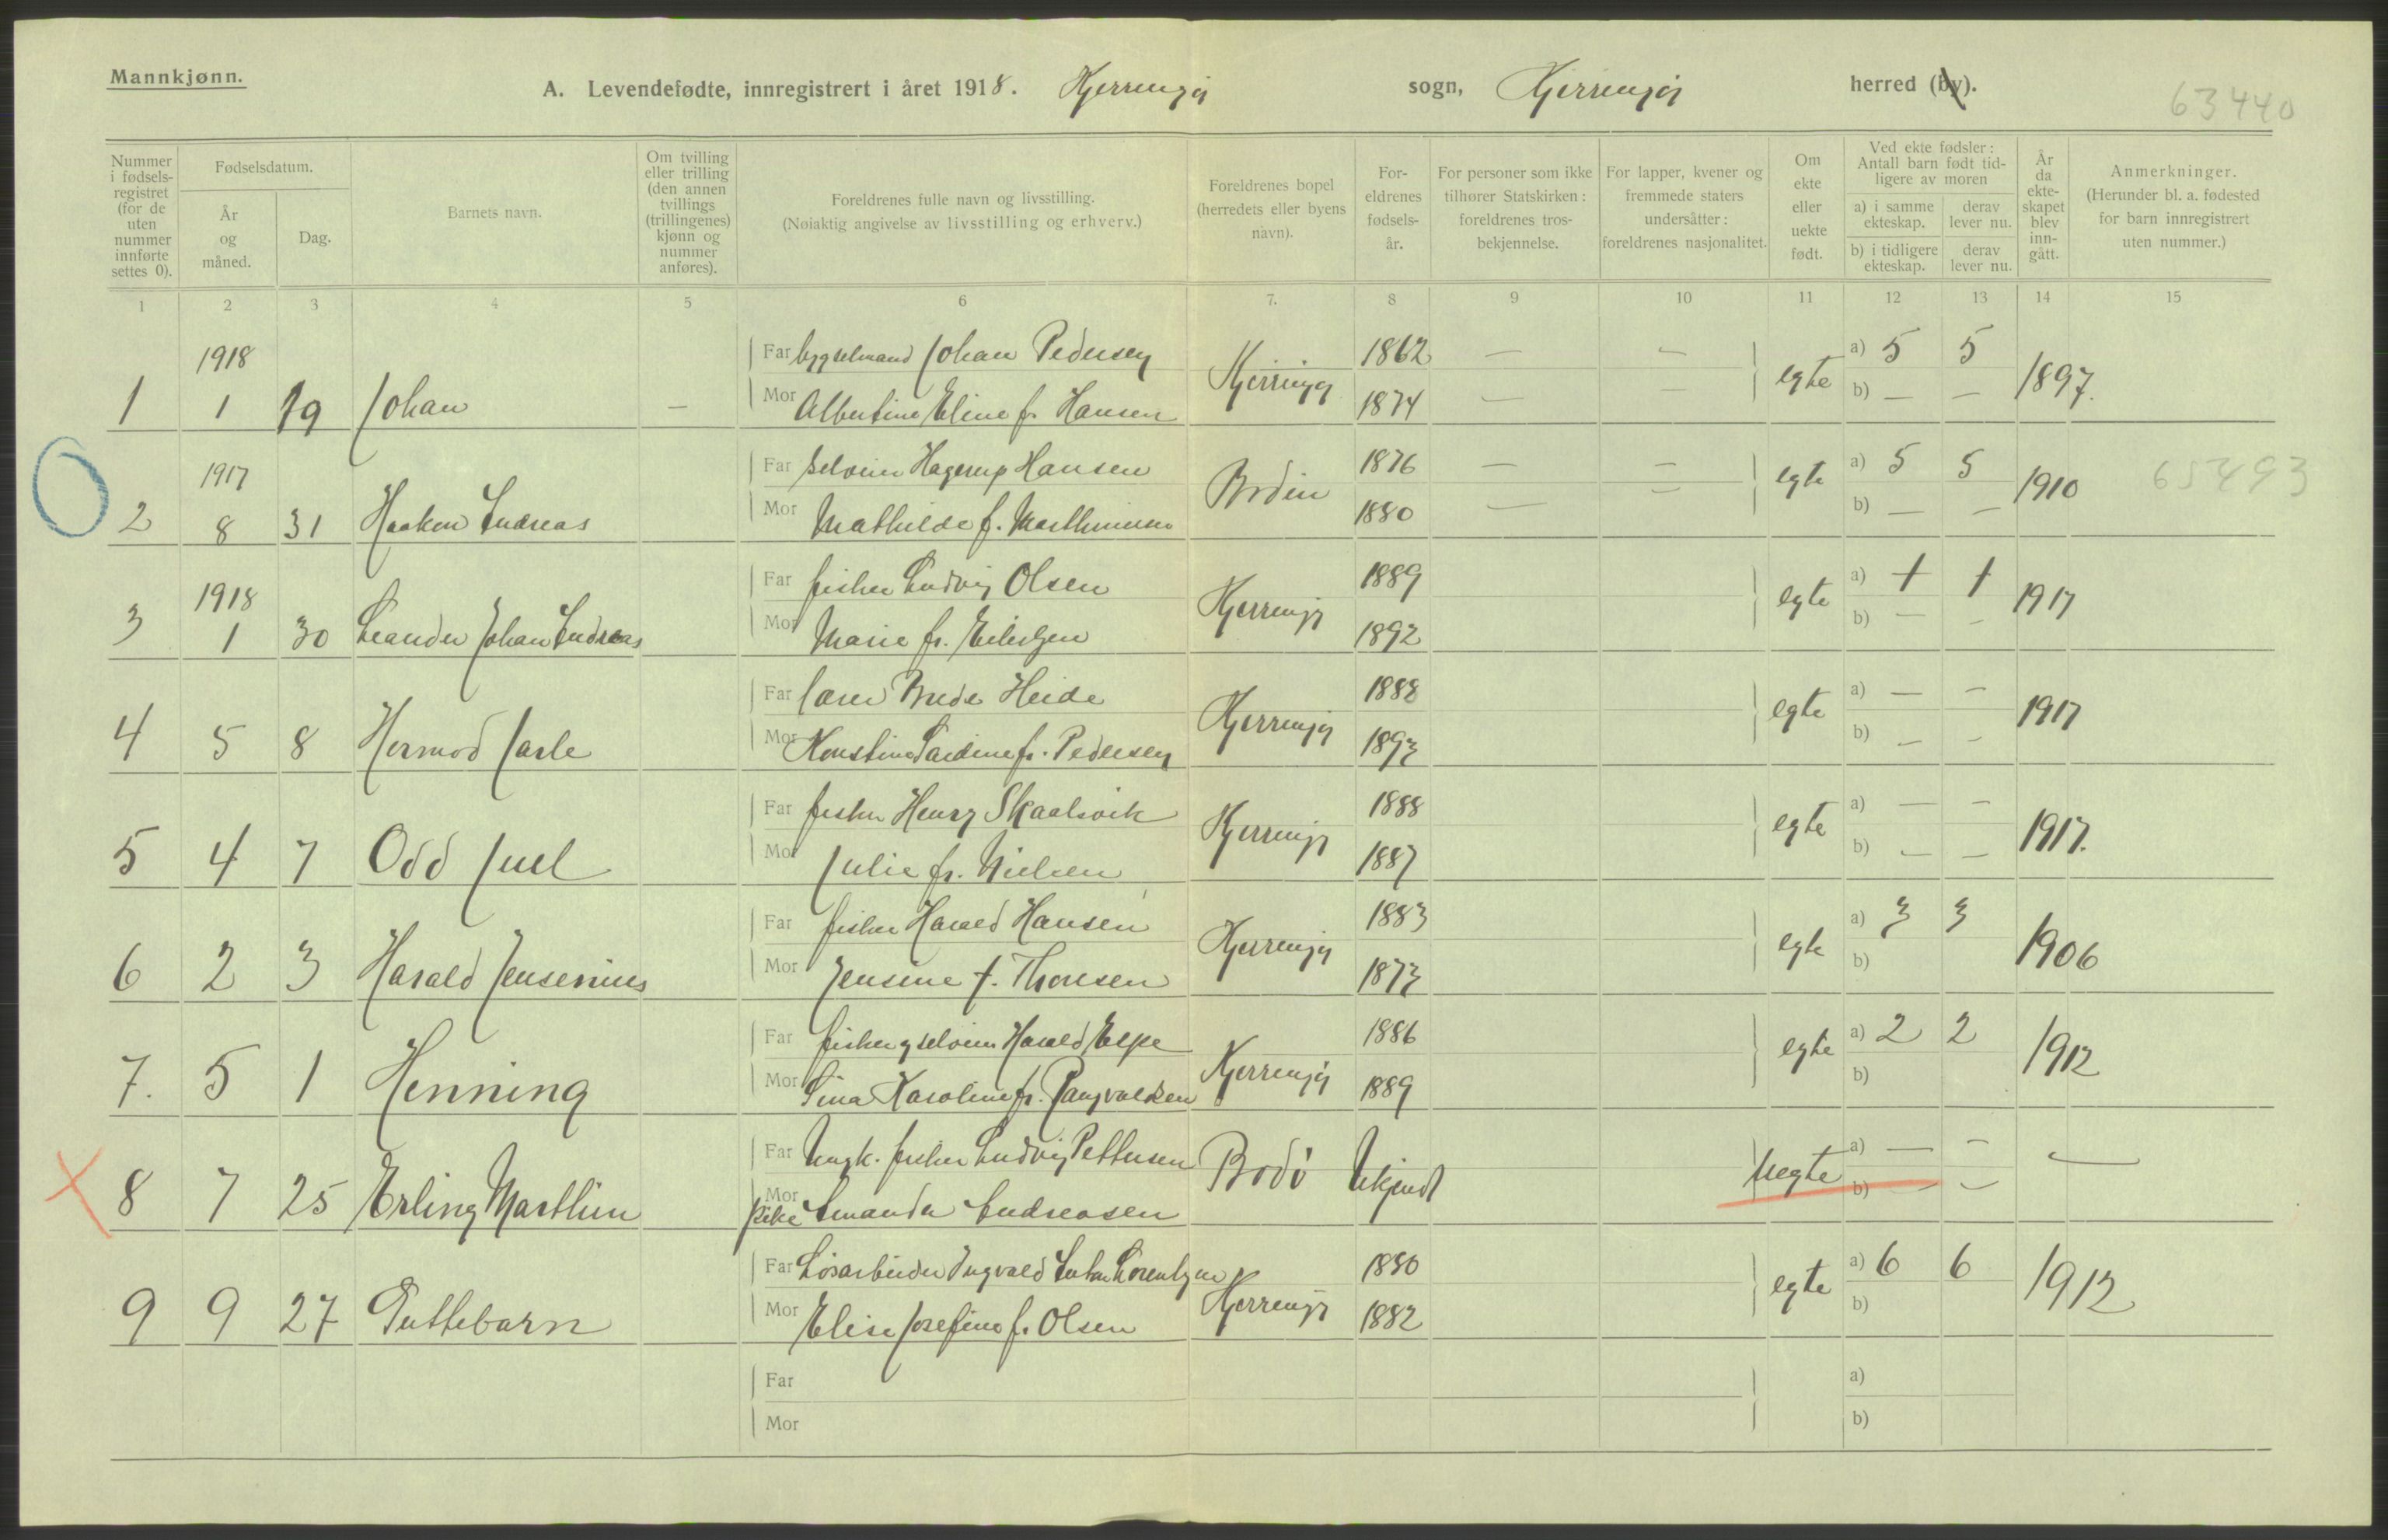 Mannkjønn.
A. Levendefødte, innregistrert i året 1918. Kjerringøy sogn, Kjerringøy herred (by).
63440
Nummer i fødsels-registret (for de uten nummer innførte settes 0).
Fødselsdatum.
År og måned.
Dag.
Barnets navn.
Om tvilling eller trilling (den annen tvillings (trillingenes) kjønn og nummer anføres).
Foreldrenes fulle navn og livsstilling.
(Nøiaktig angivelse av livsstilling og erhverv.)
Foreldrenes bopel (herredets eller byens navn).
For-eldrenes fødsels-år.
For personer som ikke tilhører Statskirken: foreldrenes tros-bekjennelse.
For lapper, kvener og fremmede staters undersåtter: foreldrenes nasjonalitet.
Om ekte eller uekte født.
Ved ekte fødsler: Antall barn født tid-ligere av moren
a) i samme ekteskap.
derav lever nu.
b) i tidligere ekteskap.
derav lever nu.
År da ekte-skapet blev inn-gått.
Anmerkninger.
(Herunder bl. a. fødested for barn innregistrert uten nummer.)
1 2 3 4 5 6 7. 8 9 10 11 12 13 14 15
1918 Far bygselmand Johan Pedersen 1862 — — a) 5 5
1 1 19 Johan — Mor Albertine Eline f. Hansen Kjerringøy 1874 — — egte b) — — 1897.
1917 Far selveier Hagerup Hansen 1876 — — a) 5 5
2 8 31 Haakon Andreas Mor Mathilde f. Marthinussen Bodin 1880 — — egte b) — — 1910 65493
1918 Far fisker Ludvig Olsen 1889 a) 1 1
3 1 30 Leander Johan Andreas Mor Marie f. Eilertsen Kjerringøy 1892 egte b) — — 1917
Far lærer Brede Heide 1888 a) — —
4 5 8 Hermod Jarle Mor Konstine Pedersen Kjerringøy 1893 egte b) — — 1917
Far fisker Henry Skaalsvik 1888 a) — —
5 4 7 Odd Juel Mor Julie f. Nielsen Kjerringøy 1887 egte b) — — 1917.
Far fisker Harald Hansen 1883 a) 3 3
6 2 3 Harald Jensenius Mor Jensine f. Thonsen Kjerringøy 1873 egte b) 1906
Far fisker og selveier Harald Espe 1886 a) 2 2
7. 5 1 Henning Mor Lina Karoline f. Rangvaldsen Kjerringøy 1889 egte b) 1912
Far Ungk. fisker Ludvig Pettersen a) — —
8 7 25 Erling Marthin Mor pike Amanda Andreasen Bodø Ukjendt uegte b) — — —
Far Løsarbeider Ingvald Anton Lorentzen 1880 a) 6 6
9 9 27 Guttebarn Mor Elise Josefine f. Olsen Kjerringøy 1882 egte b) 1912
Far a)
Mor b)